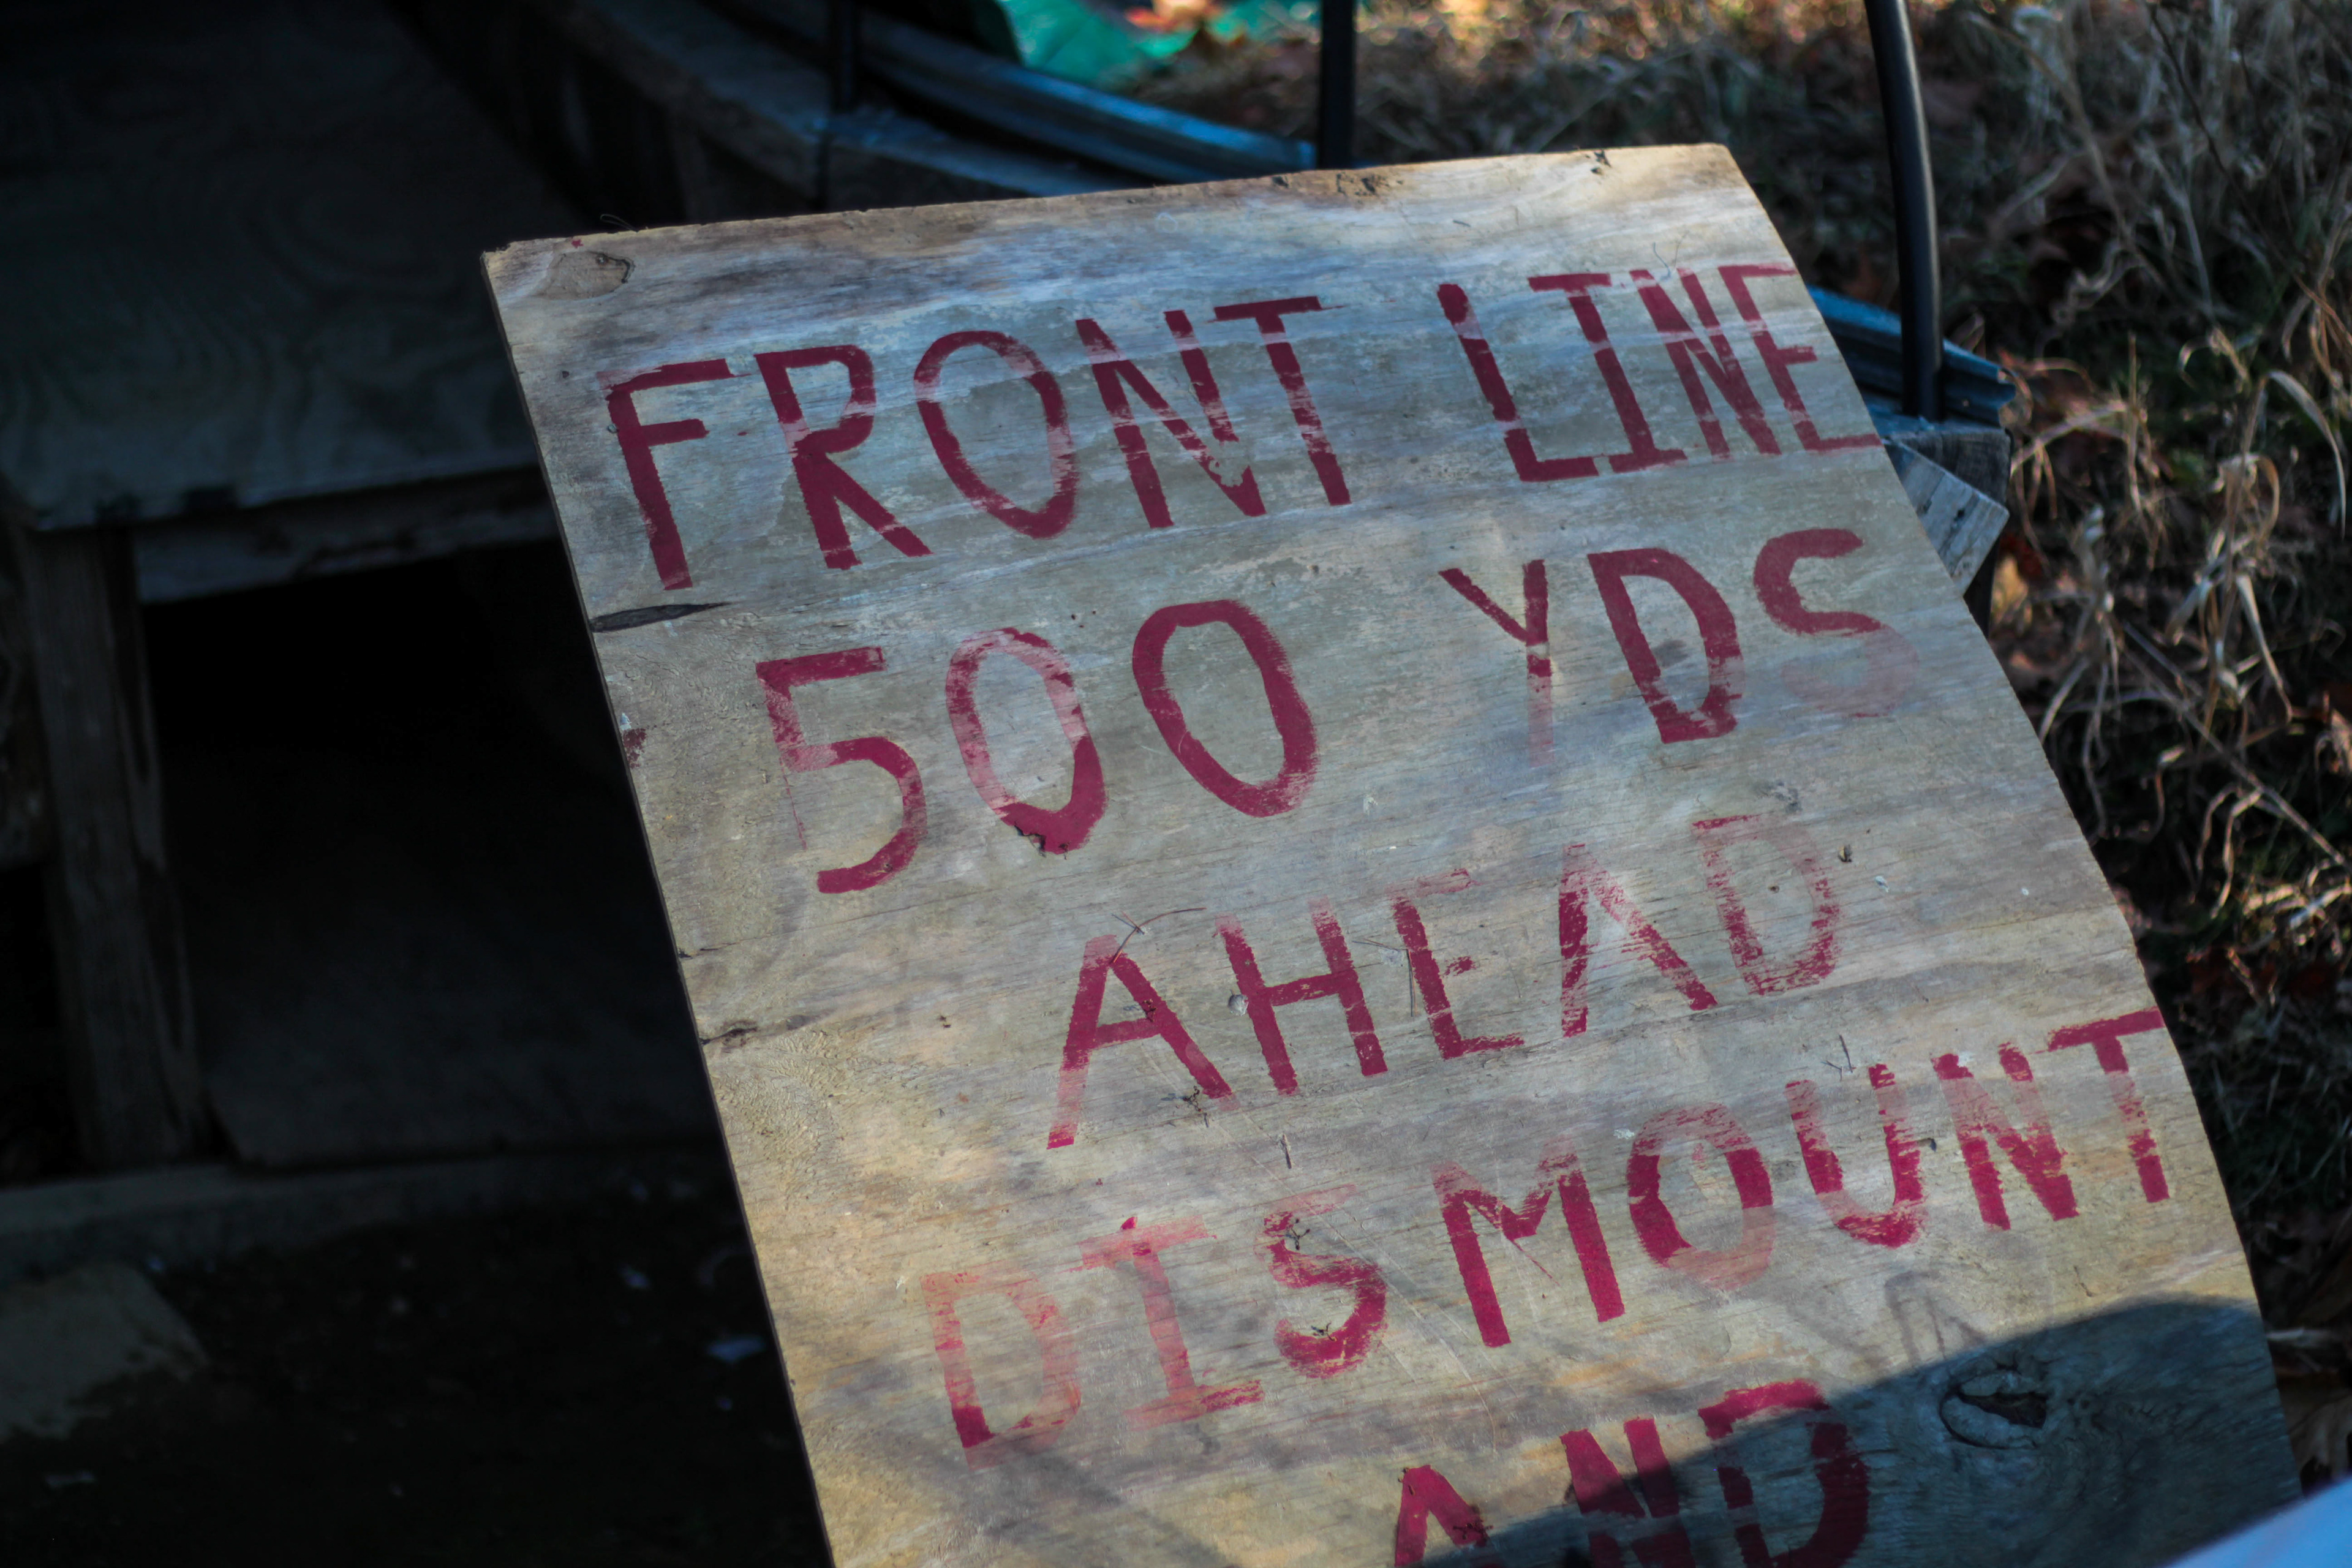 FRONT LINE
500 YDS
AHEAD
DISMOUNT
AND